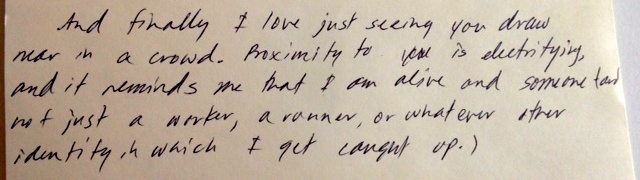 And finally I love just seeing you draw
near in a crowd. Proximity to you is electrifying,
and it reminds me that I am alive and someone (and
not just a worker, a runner, or whatever other
identity in which I get caught up.)